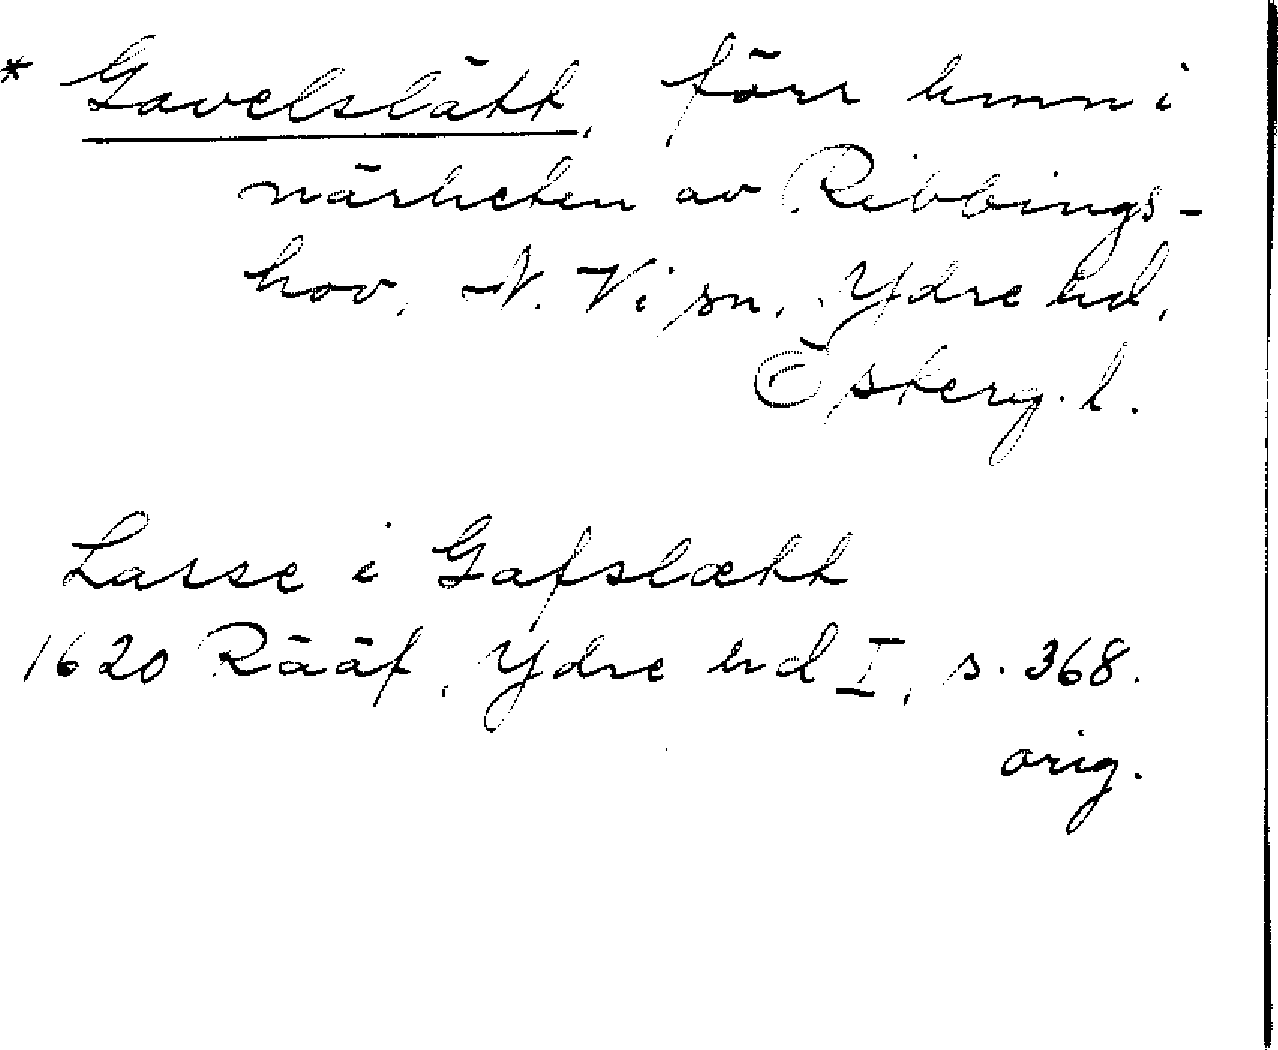 * Gavelslätt, förr hmn i
närheten av Ribbings-
hov, N. Vi sn, Ydre hd,
Österg. l.
Larse i Gafslætt
1620 Rääf, Ydre hd I, s. 368.
orig.